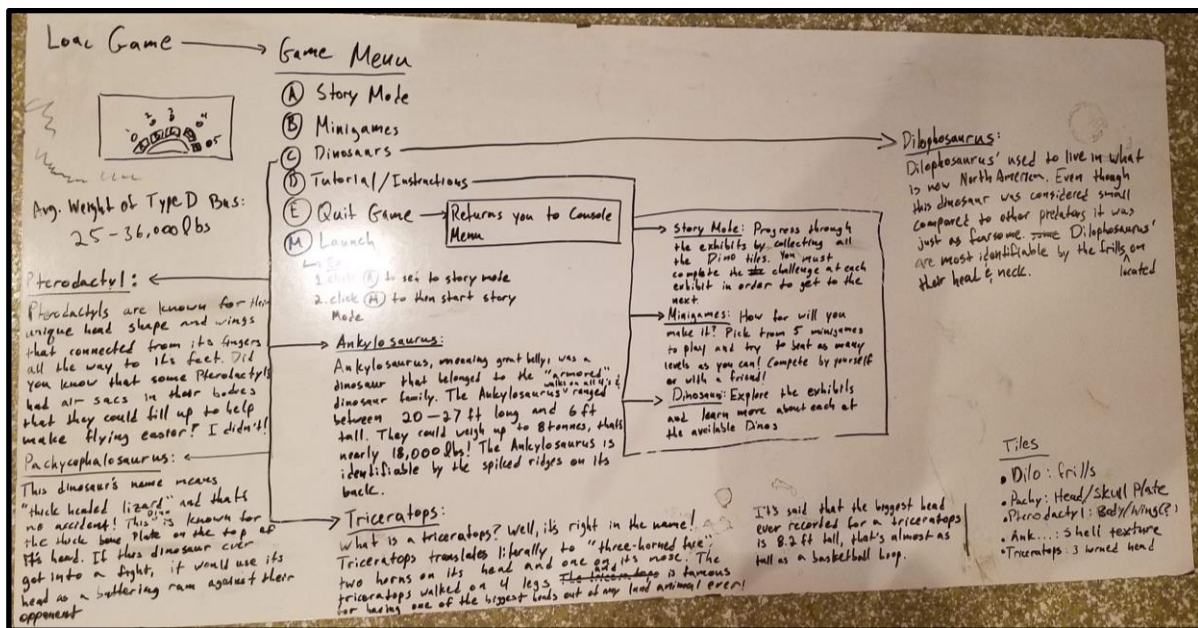 Load Game
Game Menu
A Story Mode
B Minigames
C Dinosaurs
D Tutorial/Instructions
E Quit Game
Returns you to Console
Menu
M Launch
1. click A to set to story mode
2. click M to then start story
Mode
0 1 2 3 4 05
Avg. Weight of Type D Bus:
25-36,000 lbs
Pterodactyl:
Pterodactyls are known for their
unique head shape and wings
that connected from its fingers
all the way to its feet. Did
you know that some Pterodactyls
had air sacs in their bodies
that they could fill up to help
make flying easier? I didn't!
Pachycephalosaurus:
This dinosaur's name means
"thick headed lizard" and thats
no accident! This Dino is known for
the thick bone plate on the top of
It's head. If this dinosaur ever
got into a fight, it would use its
head as a battering ram against their
opponent
Ankylosaurus:
Ankylosaurus, meaning great belly, was a
dinosaur that belonged to the "armored"
dinosaur family. The Ankylosaurus walks on all 4's & ranged
between 20-27 ft long and 6 ft
tall. They could weigh up to 8 tonnes, thats
nearly 18,000 lbs! The Ankylosaurus is
identifiable by the spiked ridges on its
back.
Triceratops:
What is a triceratops? Well, it's right in the name!
Triceratops translates literally, to "three-horned face"
two horns on its head and one on its nose. The
triceratops walked on 4 legs The triceratops and is famous
for having one of the biggest heads out of any land animal ever!
It's said that the biggest head
ever recorded for a triceratops
is 8.2 ft tall, that's almost as
tall as a basketball hoop.
Story Mode: Progress through
the exhibits by collecting all
the Dino tiles. You must
complete the challenge at each
exhibit in order to get to the
next.
Minigames: How far will you
make it? Pick from 5 minigames
to play and try to beat as many
levels as you can! Compete by yourself
or with a friend!
Dinosaurs: Explore the exhibits
and learn more about each of
the available Dinos
Dilophosaurus:
Dilophosaurus' used to live in what
is now North America. Even though
this dinosaur was considered small
compared to other predators it was
just as fearsome. Dilophosaurus'
are most identifiable by the frills located on
their head & neck.
Tiles
• Dilo: frills
• Pachy: Head/Skull Plate
• Pterodactyl: Body/Wing(?)
• Ank...: Shell texture
• Triceratops: 3 horned head